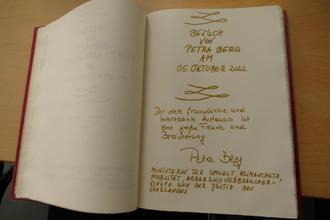 BESUCH
VON
PETRA BERG
AM
05. OKTOBER 2022
Der stete freundliche und
interessante Austausch ist
eine große Freude und
Bereicherung
Petra Berg
MINISTERIN FÜR UMWELT, KLIMASCHUTZ,
MOBILITÄT, AGRAR UND VERBRAUCHER-
SCHUTZ UND DER JUSTIZ DES
SAARLANDES